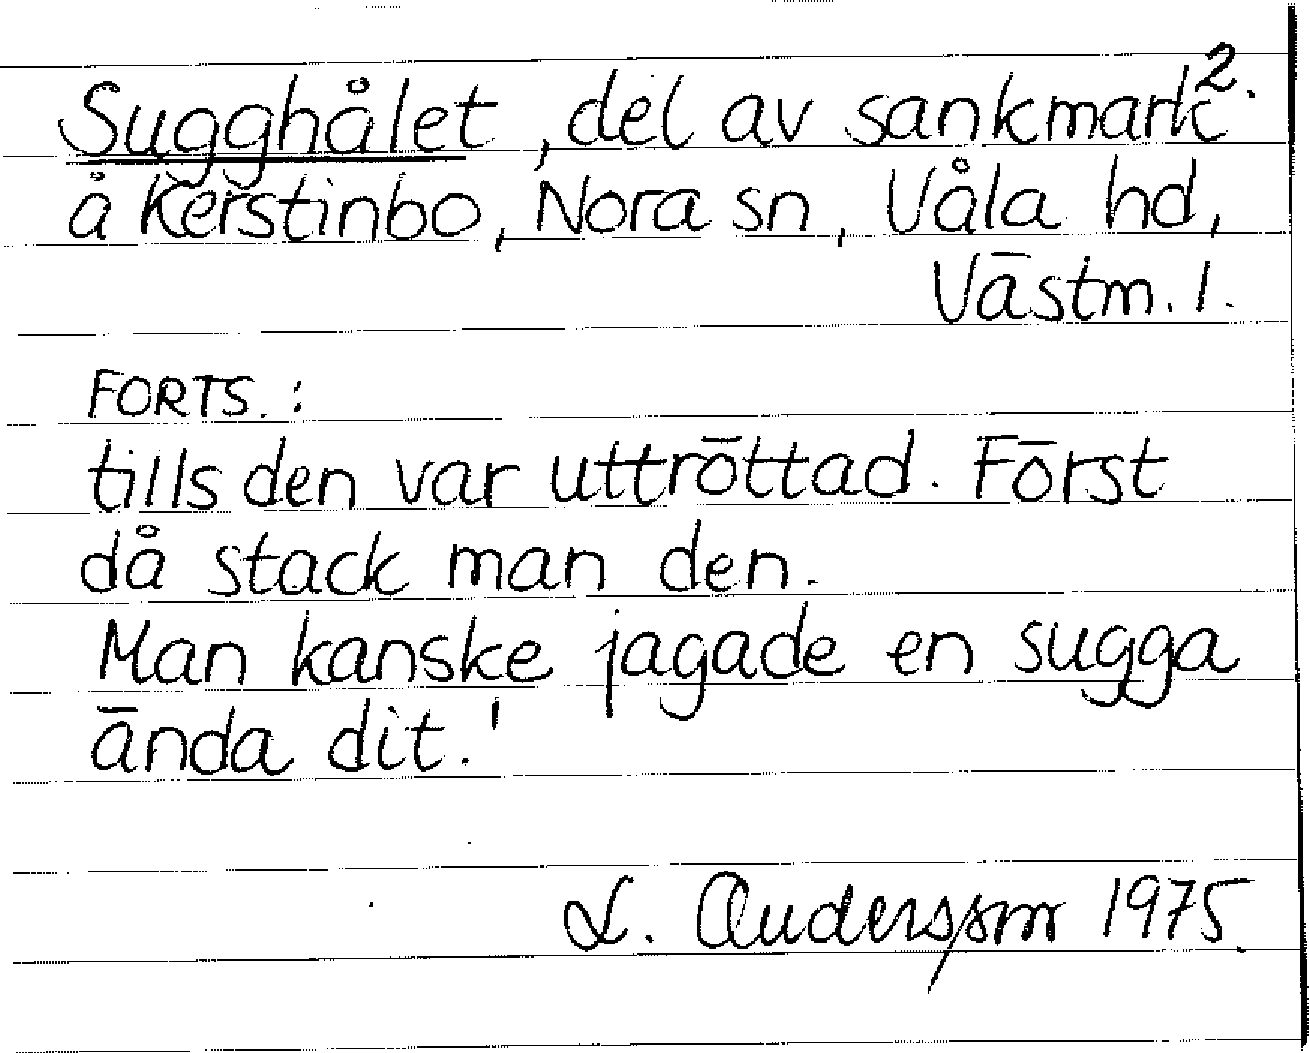 2.
Sugghålet, del av sankmark
å Kerstinbo, Nora sn, Våla hd,
Västm. l.
FORTS. :
tills den var uttröttad. Först
då stack man den.
Man kanske jagade en sugga
ända dit.'
L. Andersson 1975.